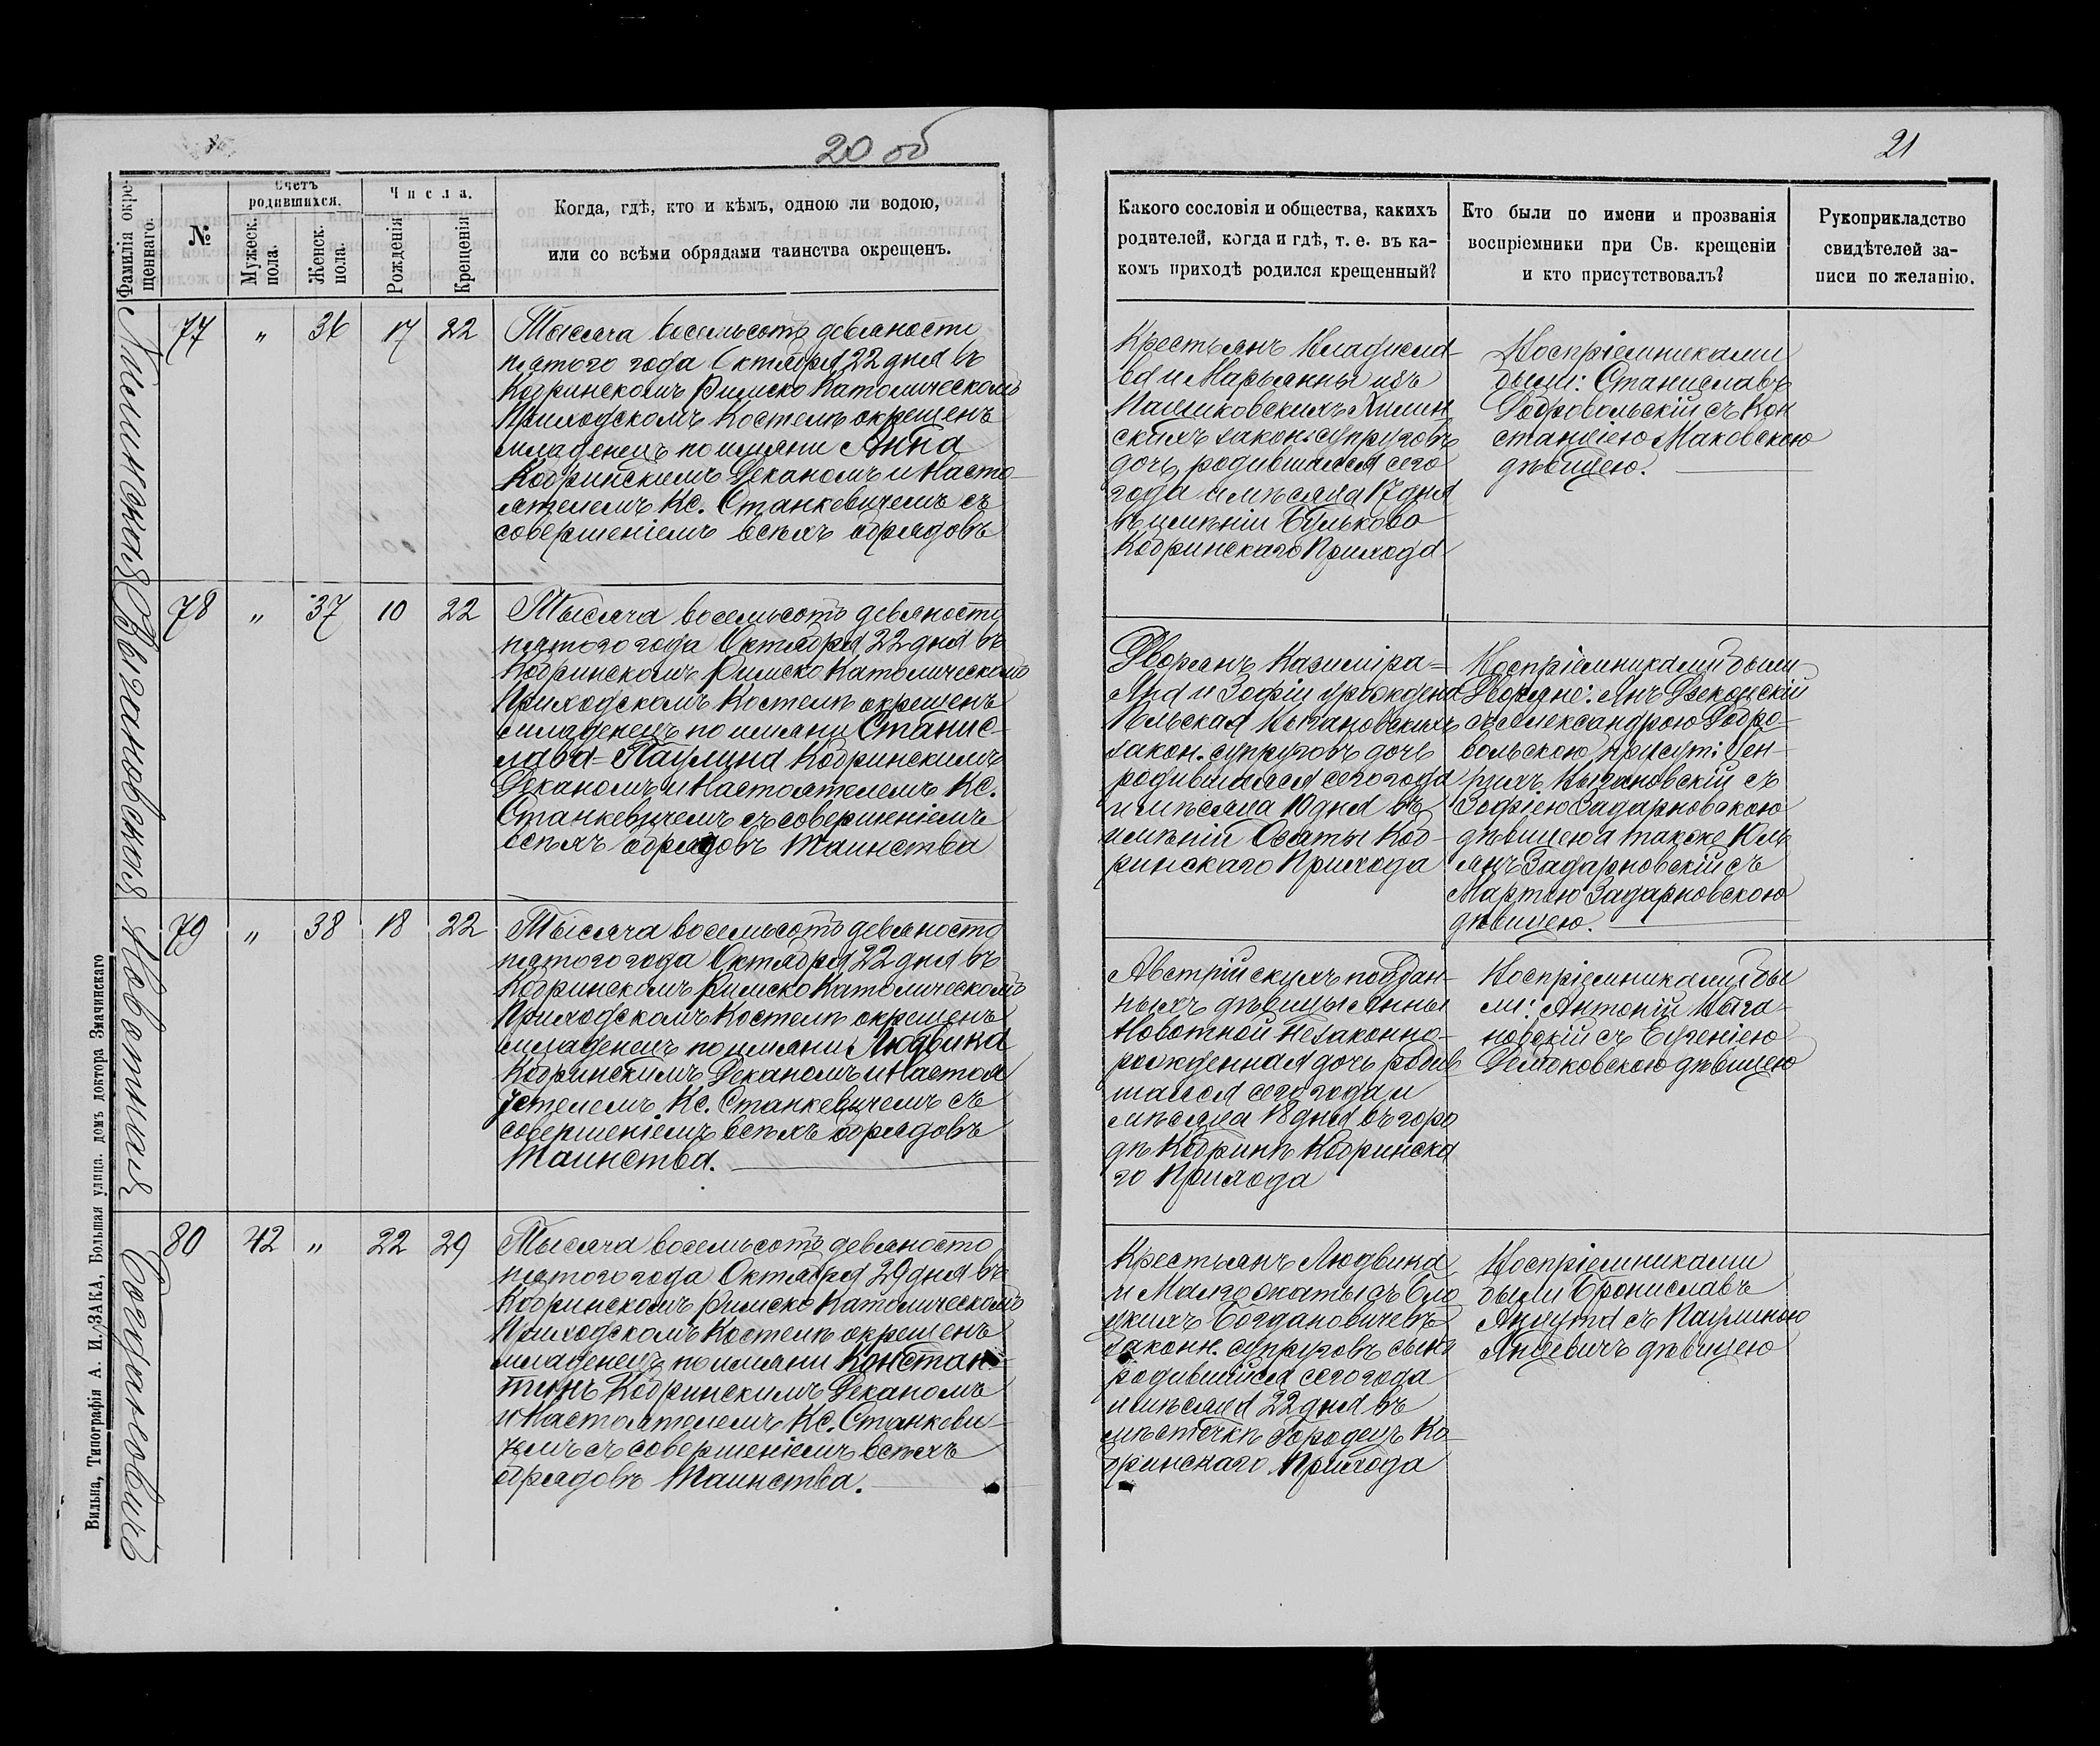 20 об
21
Фамилія окре-
щеннаго.
№
Счетъ
родившихся.
Мужеск.
пола.
Женск.
пола.
Числа.
Рожденія
Крещенія
Когда, гдѣ, кто и кѣмъ, одною ли водою,
или со всѣми обрядами таинства окрещенъ.
Какого сословія и общества, какихъ
родителей, когда и гдѣ, т. е. въ ка-
комъ приходѣ родился крещенный?
Кто были по имени и прозванія
воспріемники при Св. крещеніи
и кто присутствовалъ?
Рукоприкладство
свидѣтелей за-
писи по желанію.
77 " 36 17 22
Тысяча восемьсотъ девяносто
пятого года Октября 22 дня въ
Кобринскомъ Римско Католическомъ
Приходскомъ Костелѣ окрещенъ
младенецъ по имяни Анна
Кобринскимъ Деканомъ и Насто-
ятелемъ Кс. Станкевичемъ съ
совершеніемъ всѣхъ обрядовъ
Крестьянъ Владисла-
ва и Марьянны изъ
скихъ закон: супруговъ
дочь, родившаяся сего
года и мѣсяца 17 дня
въ имѣніи Бульково
Кобринскаго Прихода
Воспріемниками
были: Станиславъ
Добровольскій съ Кон
станціею Маковскою
дѣвицею.
Выгановская
78 " 37 10 22
Тысяча восемьсотъ девяносто
пятого года Октября 22 дня въ
Кобринскомъ Римско Католическомъ
Приходскомъ Костелѣ окрещенъ
младенецъ по имяни Станис-
лава-Паулина Кобринскимъ
Деканомъ и Настоятелемъ Кс.
Станкевичемъ съ совершеніемъ
всѣхъ обрядовъ Таинства
Дворянъ Казиміра=
Яна и Зофіи урожденная
Выгановскихъ
закон. супруговъ дочь
родившаяся сего года
и мѣсяца 10 дня въ
имѣніи Осаты Коб-
ринскаго Прихода
Воспріемниками были
Дворяне: Янъ
съ Александрою Добро-
вольскою присут: Ген-
рихъ Выгановскій съ
Зофіею Задарновскою
дѣвицею а также Юль
янъ Задарновскій съ
Мартою Задарновскою
дѣвицею.
Новотная
79 " 38 18 22
Тысяча восемьсотъ девяносто
пятого года Октября 22 дня въ
Кобринскомъ Римско Католическомъ
Приходскомъ Костелѣ окрещенъ
младенецъ по имяни Людвика
Кобринскимъ Деканомъ и Настоя
телемъ Кс. Станкевичемъ съ
совершеніемъ всѣхъ обрядовъ
Таинства.
Австрійскихъ поддан-
ныхъ дѣвицы Анны
Новотной незаконно-
рожденная дочь родив
шаяся сего года и
мѣсяца 18 дня въ горо
дѣ Кобринѣ Кобринска
го Прихода
Воспріемниками бы
ли: Антоній Выга-
новскій съ Евгеніею
дѣвицею
Богдановичъ
80 42 " 22 29
Тысяча восемьсотъ девяносто
пятого года Октября 29 дня въ
Кобринскомъ Римско Католическомъ
Приходскомъ Костелѣ окрещенъ
младенецъ по имяни Констан-
тинъ Кобринскимъ Деканомъ
и Настоятелемъ Кс. Станкеви-
чемъ съ совершеніемъ всѣхъ
обрядовъ Таинства.
Крестьянъ Людвика
и Малгожаты
Богдановичевъ
законн. супруговъ сынъ
родившійся сего года
и мѣсяца 22 дня въ
мѣстечкѣ Городецъ Ко-
бринскаго Прихода
Воспріемниками
были Брониславъ
съ Паулиною
Янцевичъ дѣвицею
Вильна, Типографія А. И. ЗАКА, Большая улица, домъ доктора Значинскаго